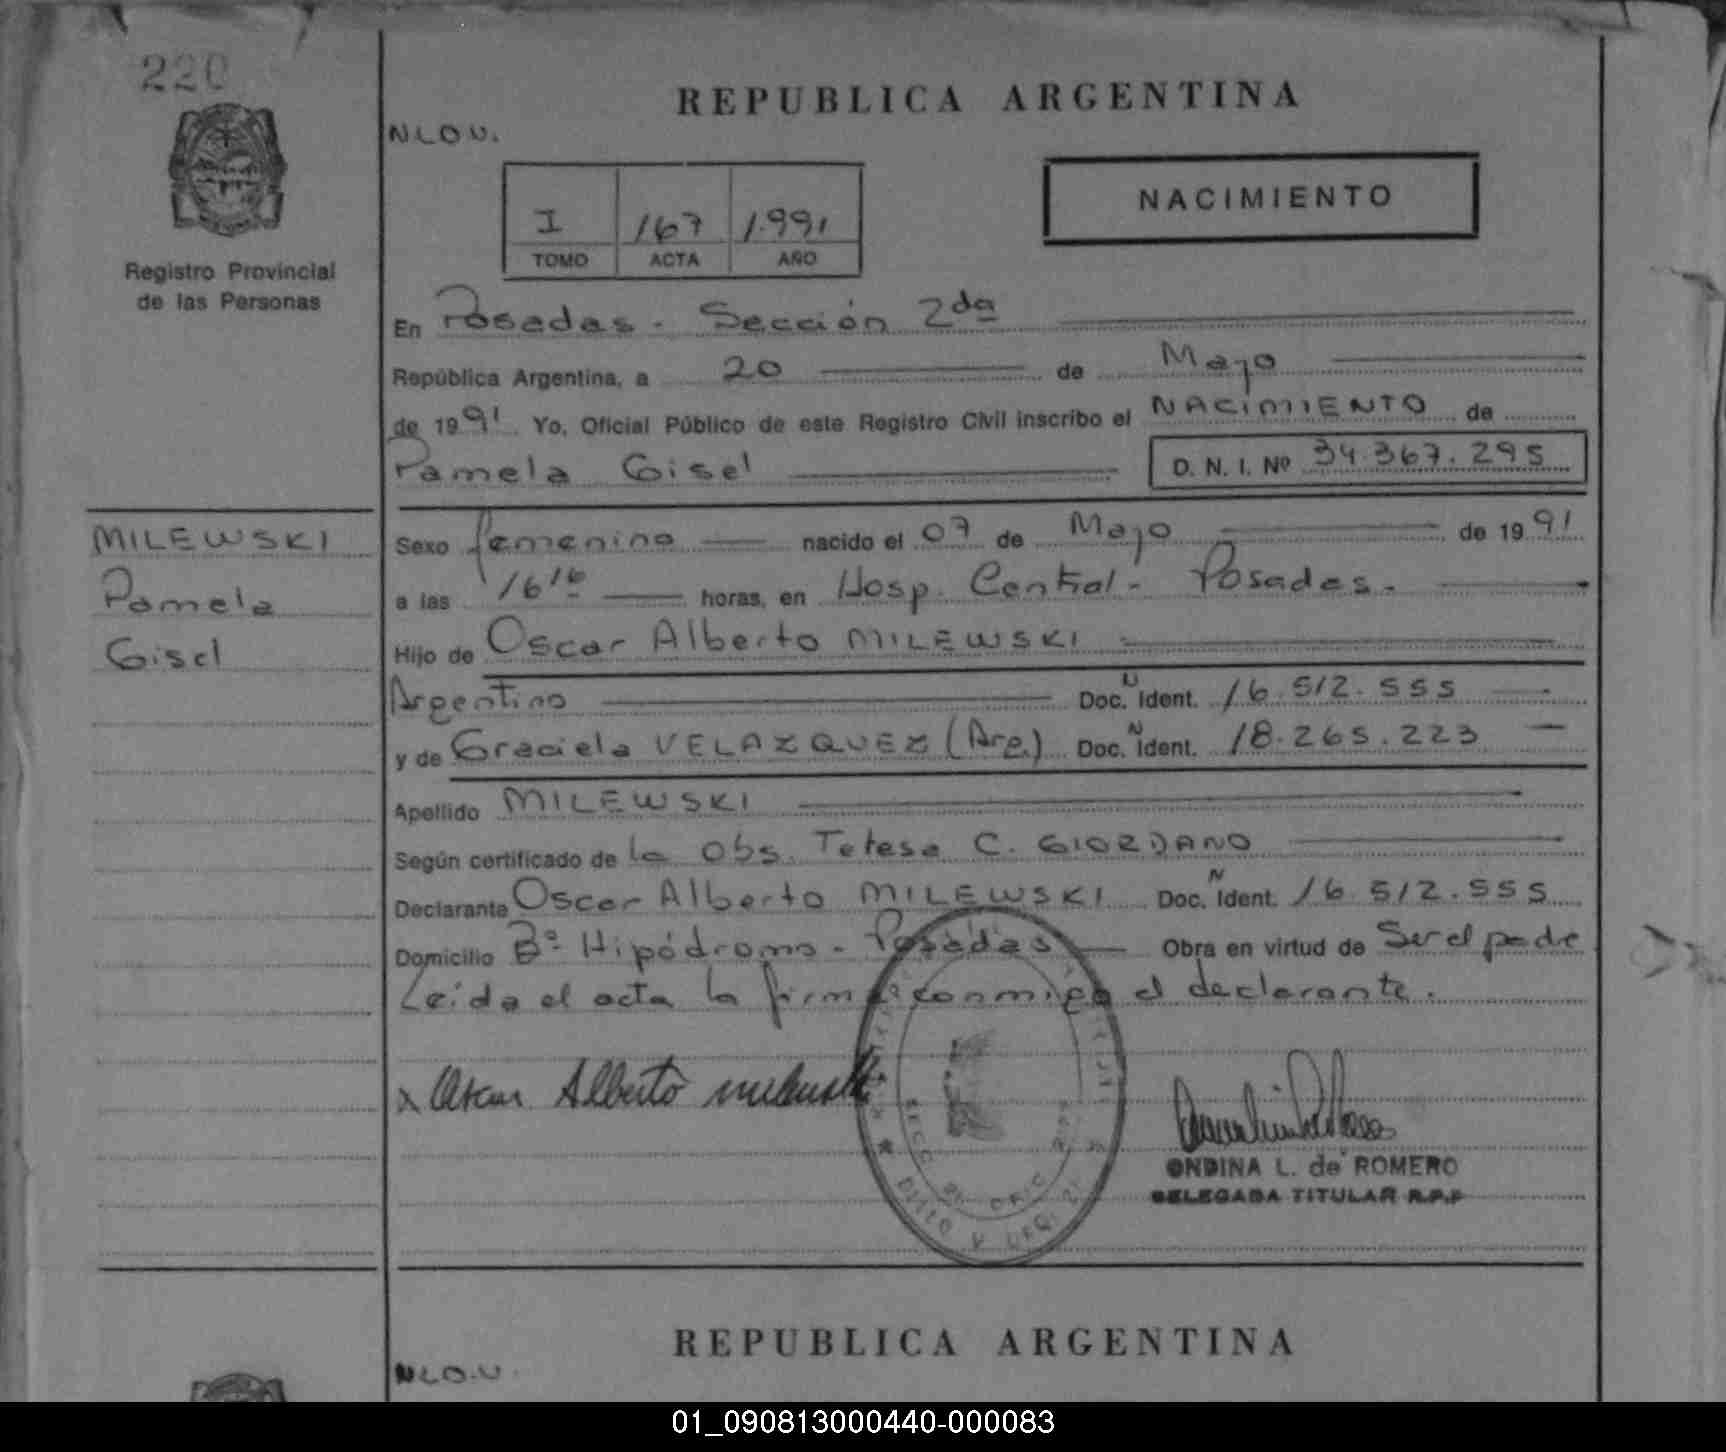 220
REPUBLICA ARGENTINA
N.L.O.U.
NACIMIENTO
I 167 1.991
TOMO ACTA AÑO
Registro Provincial
de las Personas
En Posadas - Sección 2da
República Argentina, a 20 de Mayo
de 1991 Yo, Oficial Público de este Registro Civil inscribo el NACIMIENTO de
Pamela Gisel D. N. I. Nº 34.367.295
MILEWSKI
Pamela
Gisel
Sexo femenino nacido el 07 de Mayo de 1991
a las 16 16 horas, en Hosp. Central - Posadas.-
Hijo de Oscar Alberto MILEWSKI
Argentino Doc. N Ident. 16.512.555
y de Graciela VELAZQUEZ (Arg.) Doc. N Ident. 18.265.223
Apellido MILEWSKI
Según certificado de la Obs. Teresa C. GIORDANO
Declarante Oscar Alberto MILEWSKI Doc. N Ident. 16.512.555
Domicilio Bº Hipódromo - Posadas Obra en virtud de Ser el padre
Leída el acta la firma conmigo el declarante.
x Oscar Alberto Milewski
ONDINA L. de ROMERO
DELEGADA TITULAR R.P.P
REPUBLICA ARGENTINA
N.L.O.U.
01_090813000440-000083